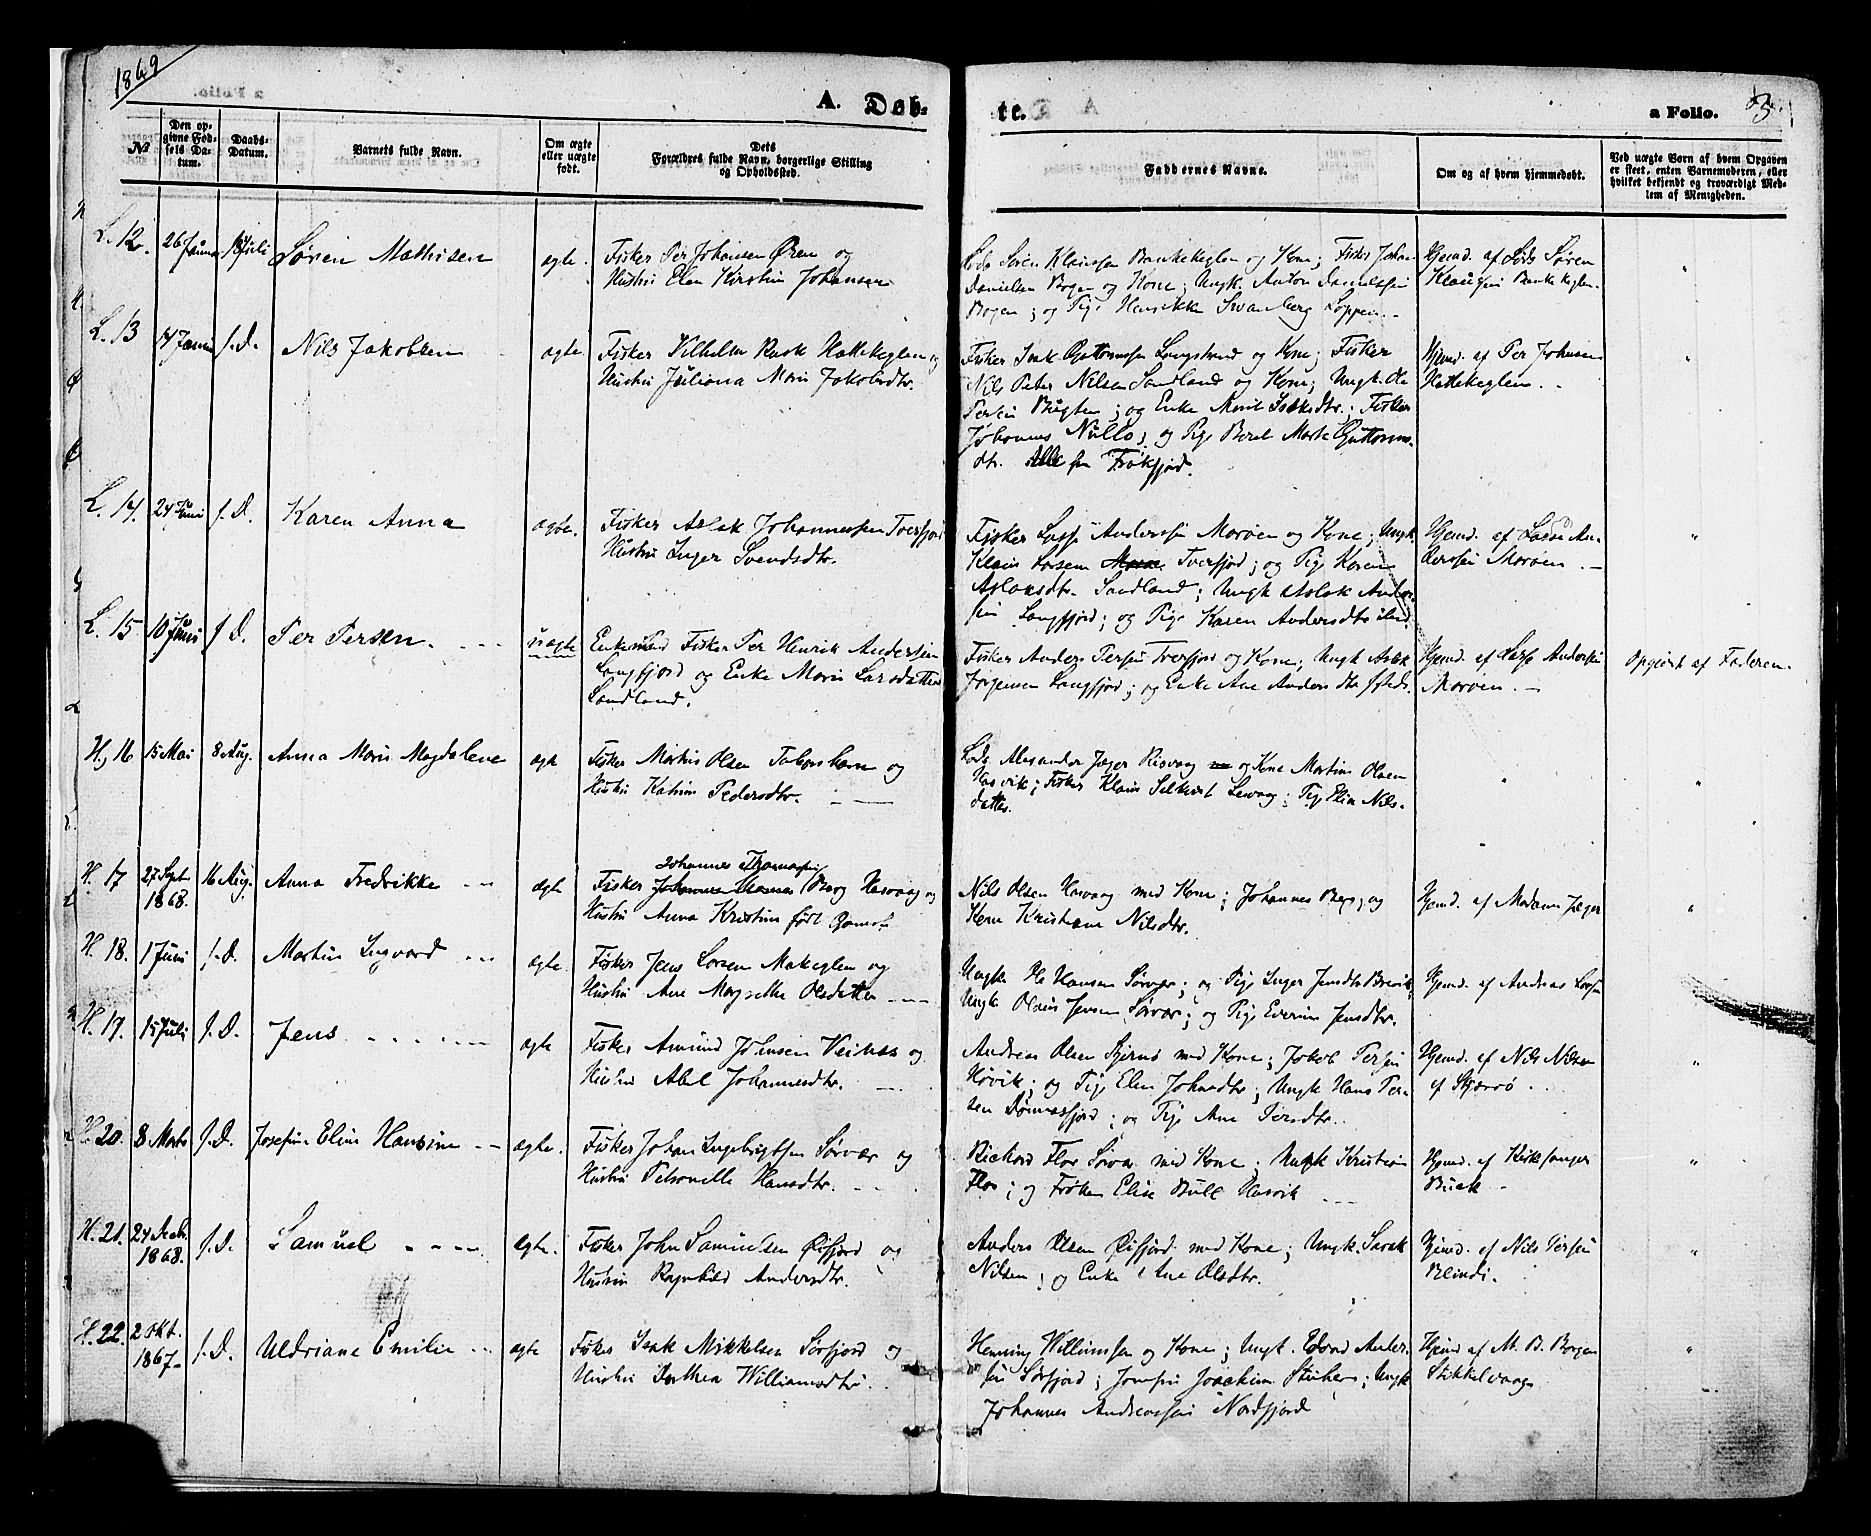 1869
A. Døb-
te.
a Folio.
5.
№
Den op-
givne Fød-
sels Da-
tum.
Daabs-
Datum.
Barnets fulde Navn.
Om ægte
eller uægte
født.
Dets
Forældres fulde Navn, borgerlige Stilling
og Opholdssted.
Faddernes Navne.
Om og af hvem hjemmedøbt.
Ved uægte Børn af hvem Opgaven
er skeet, enten Barnemoderen, eller
hvilket bekjendt og troværdigt Med-
lem af Menigheden.
L. 12. 26 Juli Søren Mathisen ægte. Fisker Per Johansen Øren og
Hustru Elen Kirstin Johansen
Lods Søren Klaussen og Kone; Fisker Johan
Danielsen Bogen og Kone; Ungk. Anton Danielssen
Bogen; og Pige Henrikke Svanberg Loppen.
Hjemd. af Lods Søren
Klaussen
L. 13 s.D. Nils Jakobsen ægte. Fisker Vilhelm Rask Hattekeglen og
Hustru Juliana Marie Jakobsdtr.
Fisker Isak Guttormsen Langstrand og Kone; Fisker
Nils Peter Nilsen Sandland og Kone; Ungk. Ole
Persen Bugten; og Enke Marit Isaksdtr.; Fisker
Johannes Nullo; og Pige Beret Marie Guttorms-
dtr. Alle fra Frakfjord.
Hjemd. af Per Johnsen
Hattekeglen.
L. 14. 24 Juni s.D. Karen Anna ægte. Fisker Aslak Johannessen Tverfjord
Hustru Inger Svendsdtr.
Fisker Lasse Anderssen Marøen og Kone; Ungk.
Klaus Larsen Tverfjord; og Pige Karen
Aslaksdtr. Sandland; Ungk Aslak Anders-
sen Langfjord; og Pige Karen Andersdtr
Hjemd. af Lasse An-
derssen Marøen.
L. 15 10 Juni s.D. Per Persen. uægte Enkemand Fisker Per Henrik Anderssen
Langfjord og Enke Marie Larsdatter
Sandland.
Fisker Anders Persen Tverfjord og Kone; Ungk Aslak
Jørgensen Langfjord; og Enke Ane Andersdtr
Hjemd. af Lasse Anderssen
Marøen.
Opgivet af Faderen.
H. 16 15 Mai 8 Aug. Anna Marie Magdalena ægte Fisker Martin Olsen og
Hustru Katrine Pedersdtr.
Lods Alexander Jæger Risvaag og Kone Martine Olsen
Hasvik; Fisker Klaus; Pige Elen Nils-
datter.
H. 17 27 Sept. 1868. 16 Aug. Anna Fredrikke ægte Fisker Johannes Thomassen Berg Hasvaag og
Hustru Anna Kristine født
Nils Olsen Hasvaag med Kone; Johannes Berg; og
Kone Kristiane Nilsdtr.
Hjemd. af Madam Jæger
H. 18. 1 Juni s.D. Martin Ingvard ægte. Fisker Jens Larsen og
Hustru Ane Margrethe Olsdatter
Ungk. Ole Hansen Sørvær; og Pige Inger Jensdtr Brevik;
Ungk Olaus Jensen Sørvær; og Pige Everine Jensdtr.
Hjemd. af Andreas Larsen
H. 19. 15 Juli s.D. Jens ægte Fisker Amund Johnsen Veines og
Hustru Abel Johannesdtr.
Andreas Olsen Stjernø med Kone; Jakob Persen
Høvik; og Pige Elen Johnsdtr; Ungk Hans Per-
sen Dønnesfjord; og Pige Ane Persdtr.
Hjemd. af Nils Nilsen
af
H. 20. 8 Marts s.D. Josefine Elen Hansine ægte. Fisker Johan Ingebrigtsen Sørvær og
Hustru Petronelle Hansdtr.
Richard Flor Sørvær med Kone; Ungk Kristian
Flor; og Frøken Elise Bull Hasvik
Hjemd. af Kirkesanger
Buck
H. 21. 24 Decbr. 1868. s.D. Samuel ægte. Fisker John Samuelsen Øifjord og
Hustru Ragnhild Andersdtr.
Anders Olsen Øifjord med Kone; Ungk. Isak
Nilsen; og Enke Ane Olsdtr.
Hjemd. af Nils Persen
Blindi.
H. 22. 2 Okt. 1867 s.D. Uldriane Emilie ægte Fisker Isak Mikkelsen Sørfjord og
Hustru Dorthea Williamsdtr.
Henning Williamsen og Kone; Ungk. Edvard Anders-
sen Sørfjord; Jomfru Joachim; Ungk
Johannes Andreassen Nordfjord
Hjemd af M. B. Bogen
Stikkelvaag